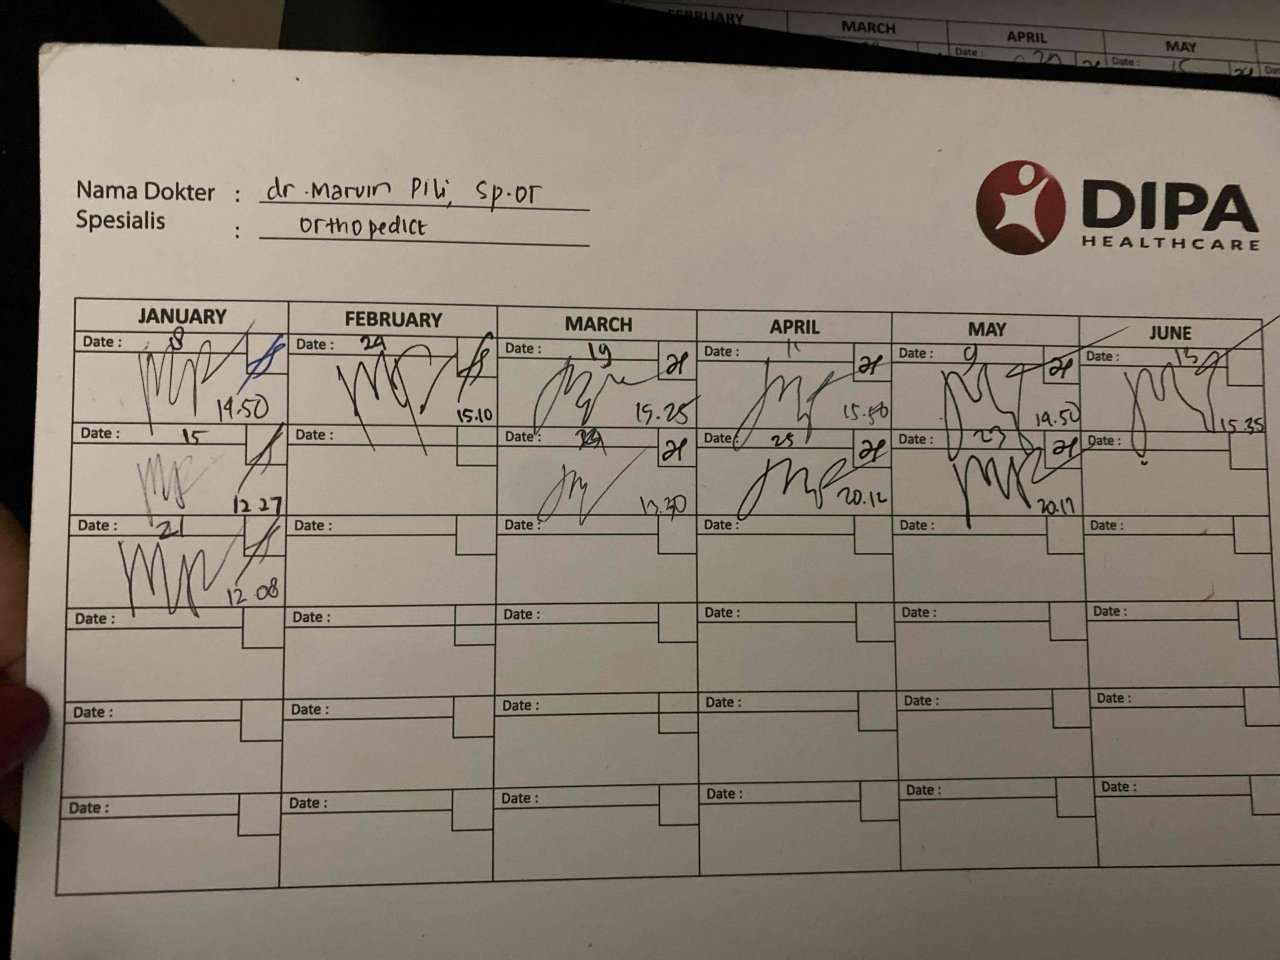 FEBRUARY MARCH APRIL MAY
Date : 20 Date : 15
Nama Dokter : dr. Marvin Pili, Sp.OT
Spesialis : Orthopedict
DIPA
HEALTHCARE
JANUARY FEBRUARY MARCH APRIL MAY JUNE
Date : 8 Date : 29 Date : 19 Date : 11 Date : 9 Date : 13
19.50 15.10 15.25 15.50 19.50 15.35
Date : 15 Date : Date : Date : 25 Date : 23 Date :
12.27 20.12 20.17
Date : 21 Date : Date : Date : Date : Date :
12.08
Date : Date : Date : Date : Date : Date :
Date : Date : Date : Date : Date : Date :
Date : Date : Date : Date : Date : Date :